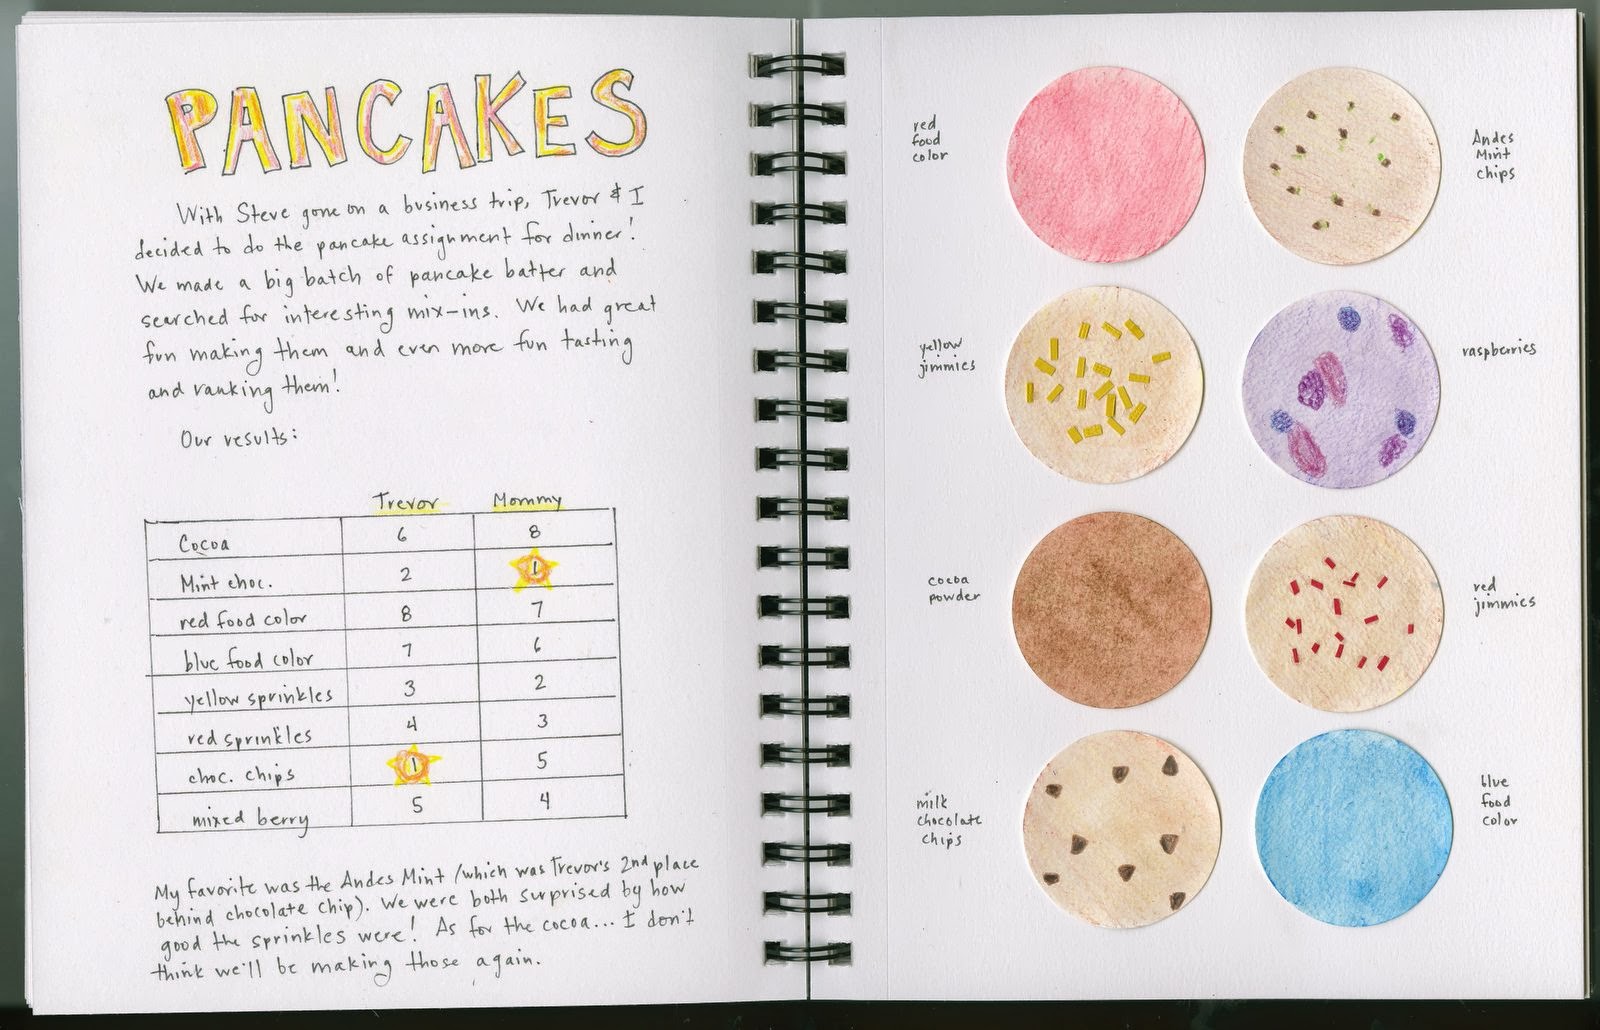 PANCAKES
With Steve gone on a business trip, Trevor & I
decided to do the pancake assignment for dinner!
We made a big batch of pancake batter and
searched for interesting mix-ins. We had great
fun making them and even more fun tasting
and ranking them!
Our results:
Trevor Mommy
Cocoa 6 8
Mint choc. 2 1
red food color 8 7
blue food color 7 6
yellow sprinkles 3 2
red sprinkles 4 3
choc. chips 1 5
mixed berry 5 4
My favorite was the Andes Mint (which was Trevor's 2nd place
behind chocolate chip). We were both surprised by how
good the sprinkles were! As for the cocoa... I don't
think we'll be making those again.
red
food
color
Andes
Mint
chips
yellow
jimmies
raspberries
cocoa
powder
red
jimmies
milk
chocolate
chips
blue
food
color